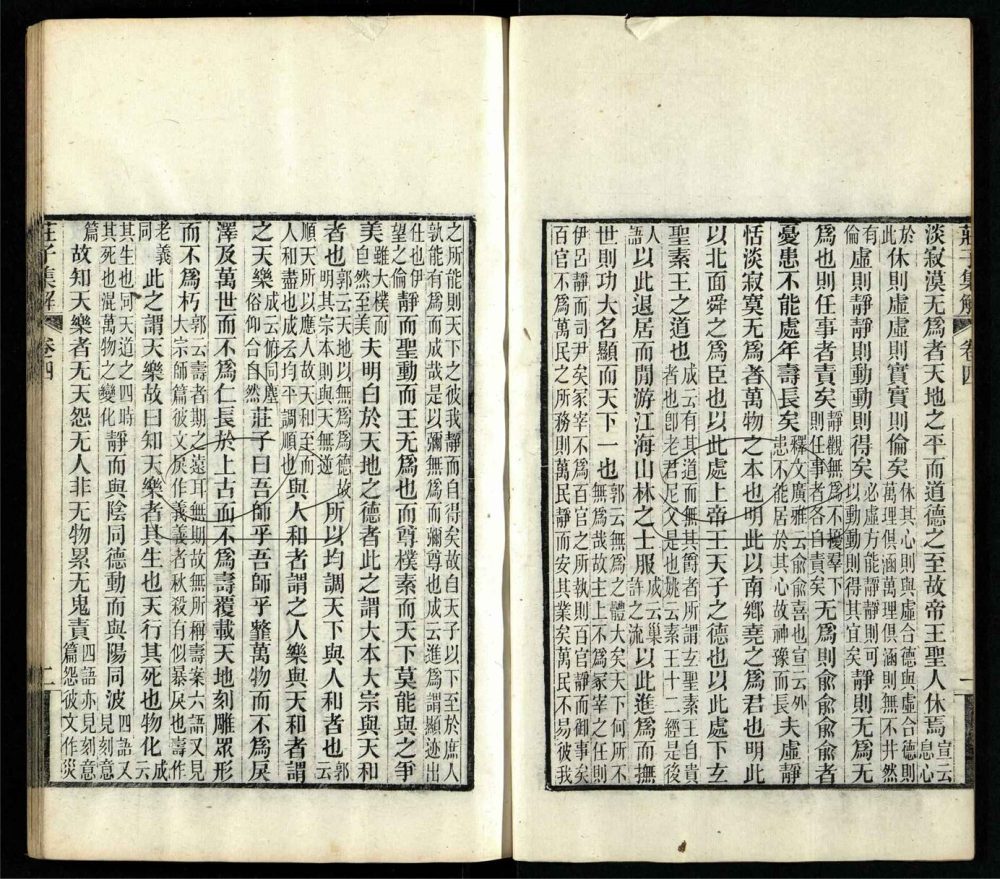 莊子集解 卷四 一
淡寂漠无爲者天地之平而道德之至故帝王聖人休焉宣云息心
於此休則虛虛則實實則倫矣休其心則與虛合德與虛合德則萬理俱涵萬理俱涵則無不井然
有倫虛則靜靜則動動則得矣必虛方能靜靜則可以動動則得其宜矣靜則无爲无
爲也則任事者責矣靜觀無爲不擾羣下則任事者各自責矣无爲則俞俞俞俞者
憂患不能處年壽長矣釋文廣雅云俞俞喜也宣云外患不能居於其心故神豫而長夫虛靜
恬淡寂寞无爲者萬物之本也明此以南鄉堯之爲君也明此
以北面舜之爲臣也以此處上帝王天子之德也以此處下玄
聖素王之道也成云有其道而無其爵者所謂玄聖素王自貴者也卽老君尼父是也姚云素王十二經是後
人語以此退居而閒游江海山林之士服成云巢許之流以此進爲而撫
世則功大名顯而天下一也郭云無爲之體大矣天下何所不無爲哉故主上不爲冢宰之任則
伊呂靜而司尹矣冢宰不爲百官之所執則百官靜而御事矣百官不爲萬民之所務則萬民靜而安其業矣萬民不易彼我
之所能則天下之彼我靜而自得矣故自天子以下至於庶人孰能有爲而成哉是以彌無爲而彌尊也成云進爲謂顯迹出
仕也伊望之倫靜而聖動而王无爲也而尊樸素而天下莫能與之爭
美雖大樸而自然至美夫明白於天地之德者此之謂大本大宗與天和
者也郭云天地以無爲爲德故明其宗本則與天無逆所以均調天下與人和者也郭云
順天所以應人故天和至而人和盡也成云均平調順也與人和者謂之人樂與天和者謂
之天樂成云俯同塵俗仰合自然莊子曰吾師乎吾師乎䪠萬物而不爲戾
澤及萬世而不爲仁長於上古而不爲壽覆載天地刻雕眾形
而不爲朽郭云壽者期之遠耳無期故無所稱壽案六語又見大宗師篇彼文戾作義義者秋殺有似暴戾也壽作
老義同此之謂天樂故曰知天樂者其生也天行其死也物化成云
其生也同天道之四時其死也混萬物之變化靜而與陰同德動而與陽同波四語又見刻意
篇故知天樂者无天怨无人非无物累无鬼責四語亦見刻意篇怨彼文作災
莊子集解 卷四 二